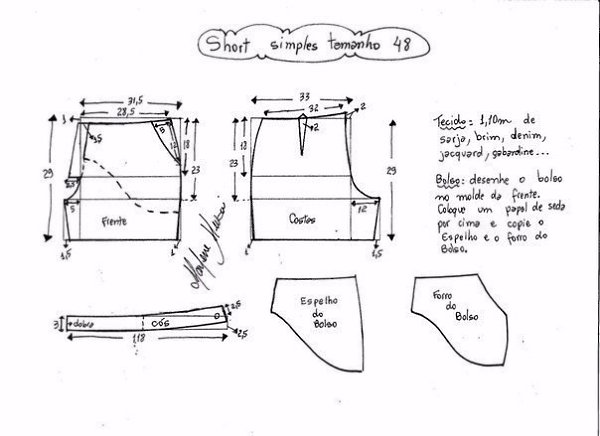 Short simples tamanho 48
31,5
28,5
1
3,5
5
12
18
23
29
5
1,5
1
Frente
33
32
2
2
12
18
23
29
12
1
1,5
Costas
Tecido: 1,10m de
sarja, brim, denim,
jacquard, gabardine...
Bolso: desenhe o bolso
no molde da frente.
Coloque um papel de seda
por cima e copie o
Espelho e o forro do
Bolso.
3
dobra
cós
2,5
2,5
1,18
Espelho
do
Bolso
Forro
do
Bolso